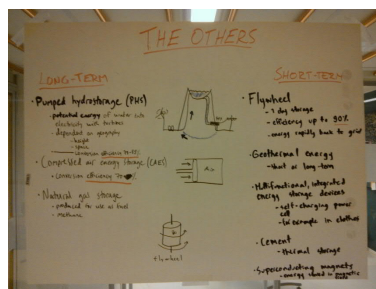 THE OTHERS
LONG-TERM
• Pumped hydrostorage (PHS)
- potential energy of water into
electricity with turbines
- dependent on geography
- height
- space
- conversion
• Compressed air energy storage (CAES)
- conversion efficiency 70%
• Natural gas storage
- produced to use as fuel
- methane
Air
flywheel
SHORT-TERM
• Flywheel
- 1 day storage
- efficiency up to 90%
- energy rapidly back to grid
• Geothermal energy
- short or long-term
• Multifunctional, integrated
energy storage devices
- self-charging power
cell
- for example in clothes
• Cement
- thermal storage
• Superconducting magnets
- energy stored in magnetic
field